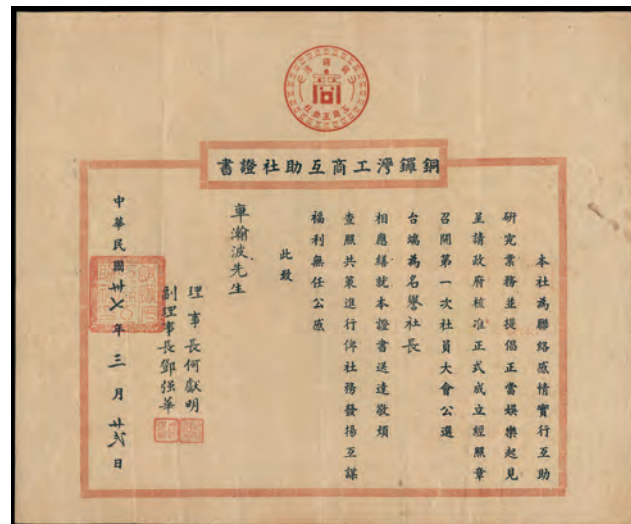 銅鑼灣工商互助社證書
本社為聯絡感情實行互助
研究業務並提倡正當娛樂起見
呈請政府核准正式成立經照章
召開第一次社員大會公選
台端為名譽社長
相應繕就本證書送達敬煩
查照共策進行俾社務發揚互謀
福利無任公感
此致
車瀚波先生
理事長何獻明
副理事長鄧強華
中華民國廿七年三月廿弍日